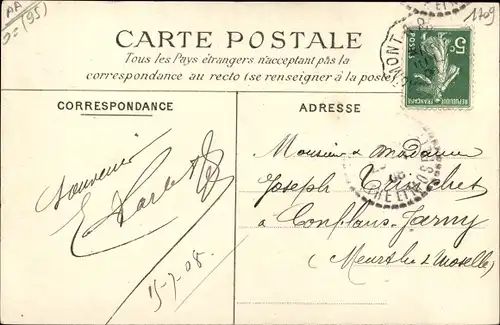 AA
(95)
1709
CARTE POSTALE
Tous les Pays étrangers n'acceptant pas la
correspondance au recto (se renseigner à la poste)
5c
POSTES
REPUBLIQUE FRANÇAISE
CORRESPONDANCE
ADRESSE
Souvenir
15-7-08.
Monsieur & Madame
Joseph
à Conflans-Jarny
(Meurthe & Moselle)